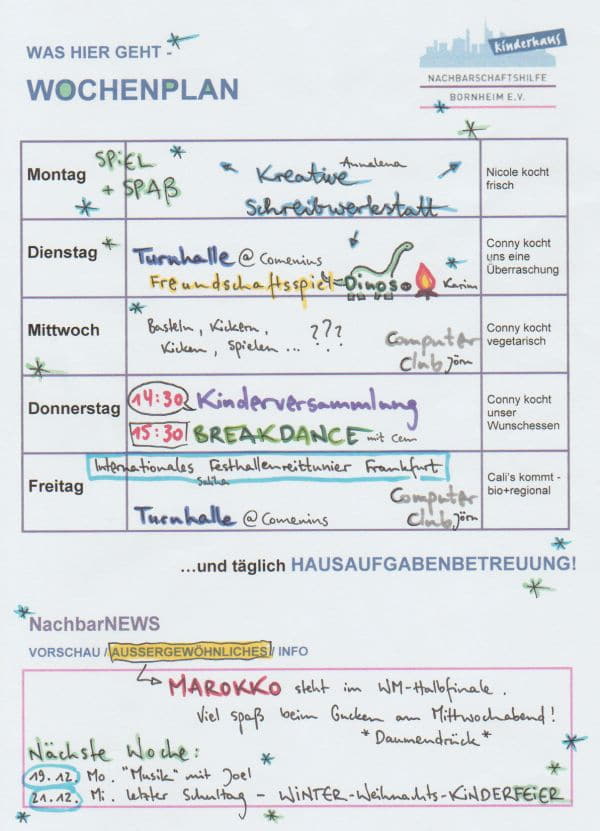 WAS HIER GEHT -
WOCHENPLAN
kinderhaus
NACHBARSCHAFTSHILFE
BORNHEIM E.V.
Montag
SPIEL
+ SPAß
Annalena
Kreative
Schreibwerkstatt
Nicole kocht
frisch
Dienstag
Turnhalle @ Comenius
Freundschaftsspiel - Dinoso
Karim
Conny kocht
uns eine
Überraschung
Mittwoch
Basteln, Kickern,
Kicken, Spielen ... ???
Computer
Club Jörn
Conny kocht
vegetarisch
Donnerstag
14:30 Kinderversammlung
15:30 BREAKDANCE mit Cem
Conny kocht
unser
Wunschessen
Freitag
Internationales Festhallenreittunier Frankfurt
Saliha
Turnhalle @ Comenins
Computer
Club Jörn
Cali's kommt -
bio+regional
...und täglich HAUSAUFGABENBETREUUNG!
NachbarNEWS
VORSCHAU / AUSSERGEWÖHNLICHES / INFO
MAROKKO steht im WM-Halbfinale.
Viel spaß beim Gucken am Mittwochabend!
*Daumendrück*
Nächste Woche:
19.12. Mo. "Musik" mit Joel
21.12. Mi. letzter Schultag - WiNTER-Weihnachts-KiNDERFEiER